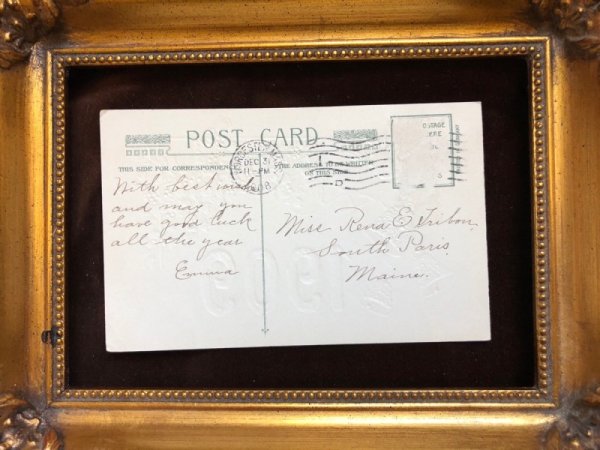 POST CARD
THIS SIDE FOR CORRESPONDENCE
THE ADDRESS TO BE WRITTEN
ON THIS SIDE
DEC 31
11-PM
With best
and may you
have good luck
all the year
Emma
Miss Rena E. Tribou,
South Paris,
Maine.